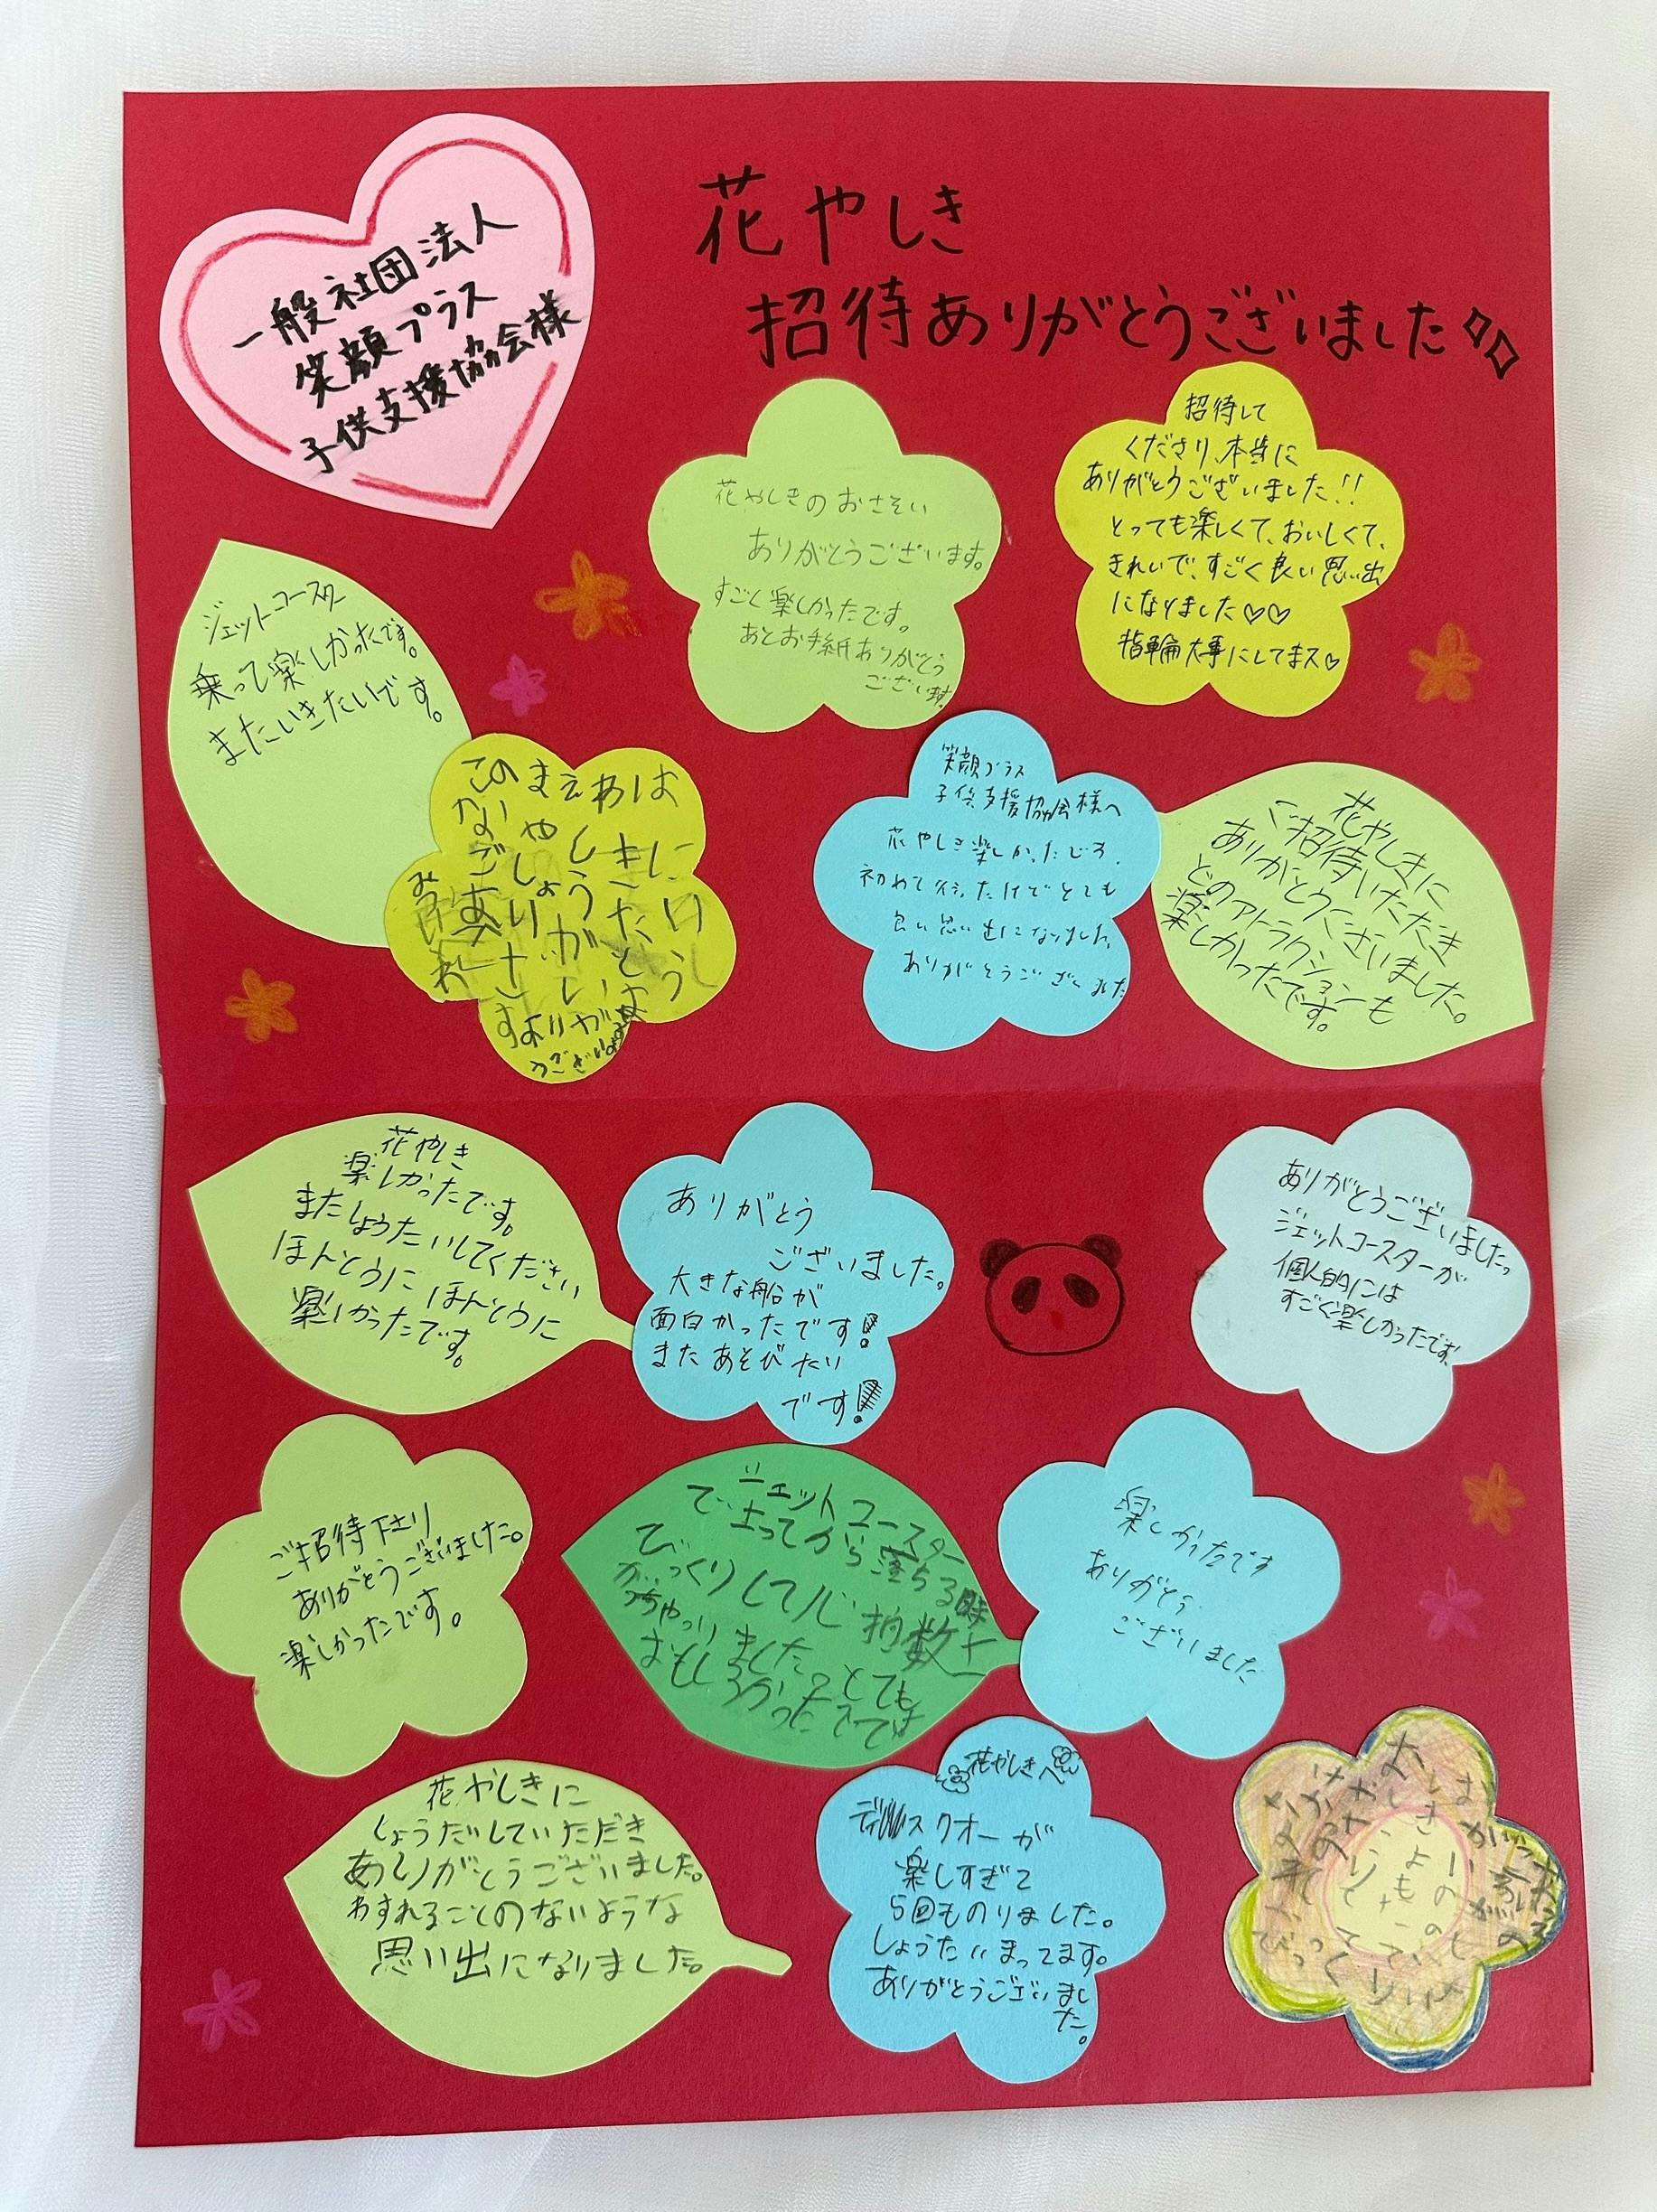 一般社団法人
笑顔プラス
子供支援協会様
花やしき
招待ありがとうございました
花やしきのおさそい
ありがとうございます。
すごく楽しかったです。
あとお手紙ありがとう
ございます。
招待して
くださり、本当に
ありがとうございました!!
とっても楽しくて、おいしくて、
きれいで、すごく良い思い出
になりました♡♡
指輪大事にしてまス♡
ジェットコースター
乗って楽しかったです。
またいきたいです。
このまえあは
笑顔プラス
子供支援協会様へ
花やしき楽しかったです。
初めて行ったけどとても
良い思い出になりました。
ありがとうござ
花やしきに
ご招待いただき
ありがとうございました。
どのアトラクションも
楽しかったです。
花やしき
楽しかったです。
またしょうたいしてください
ほんとうにほんとうに
楽しかったです。
ありがとう
ございました。
大きな船が
面白かったです!
またあそびたい
です!!
ありがとうございました。
ジェットコースターが
個人的には
すごく楽しかったです。
ご招待下さり
ありがとうございました。
楽しかったです。
ジェットコースター
で 上ってから落ちる時
びっくりして心拍数上
がっちゃいました。とても
おもしろかったです
楽しかったです
ありがとう
ございました
花やしきに
しょうだいしていただき
ありがとうございました。
わすれることのないような
思い出になりました。
花やしきへ
ディスクオーが
楽しすぎて
5回ものりました。
しょうたいまってます。
ありがとうございまし
た。